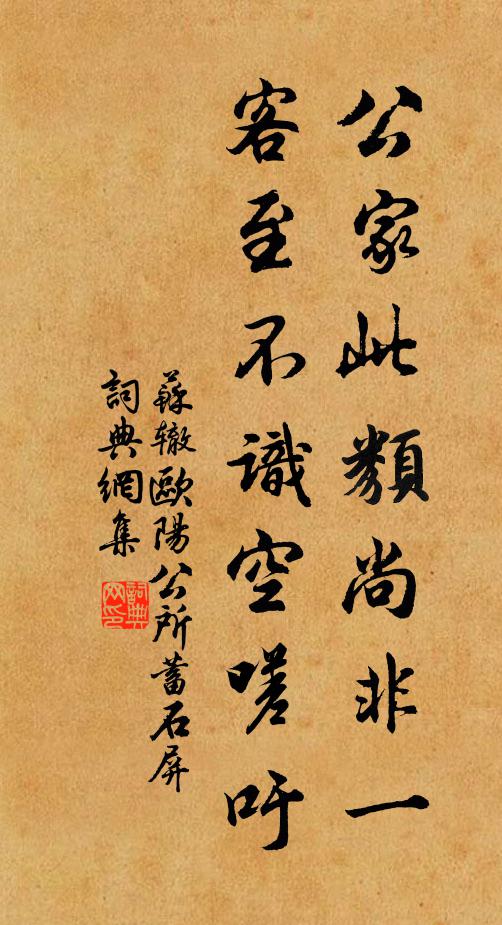 公家此類尚非一
客至不識空嗟吁
蘇轍歐陽公所蓄石屏
詞典網集
詞典網印